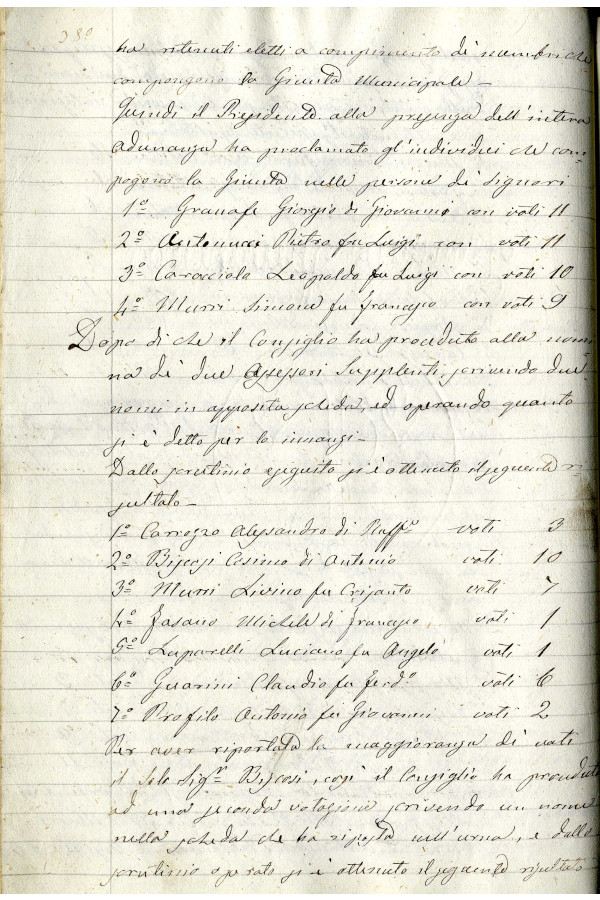 380
ha ritenuti eletti a compimento de' membri che
compongono la Giunta Municipale -
Quindi il Presidente alla presenza dell'intera
adunanza ha proclamato gl'individui che com-
pogono la Giunta nelle persone de' signori
1º Granafe Giorgio di Giovanni con voti 11
2º Antonucci Pietro fu Luigi con voti 11
3º Carocciolo Leopoldo fu Luigi con voti 10
4º Murri Simone fu Francesco con voti 9
Dopo di che il Consiglio ha proceduto alla nomi
na de' due Assessori Supplenti, scrivendo due
nomi in apposita scheda, ed operando quanto
si è detto per lo innanzi -
Dallo scrutinio eseguito si è ottenuto il seguente ri-
sultato -
1º Carrozzo Alessandro di Raff.º voti 3
2º Cosimo di Antonio voti 10
3º Murri Livino fu Crisanto voti 7
4º Fasano Michele di Francesco voti 1
5º Luparelli Luciano fu Angelo voti 1
6º Guarini Claudio fu Ferd.º voti 6
7º Profilo Antonio fu Giovanni voti 2
Per aver riportata la maggioranza di voti
il solo Sig.r Biscosi, così il Consiglio ha proceduto
ad una seconda votazione scrivendo un nome
nella scheda che ha riposta nell'urna, e dallo
scrutinio operato si è ottenuto il seguente risultato